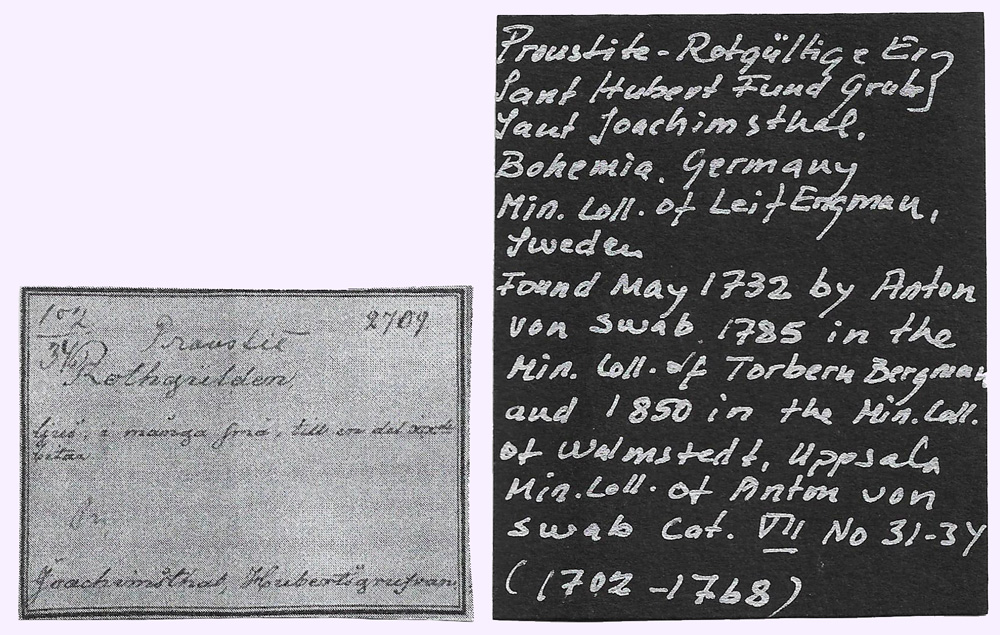 102 2709
34 Proustit
Rothgülden,
ljus, i många små, till en del
bitar
Joachimsthal, Hubertsgrufvan.
Proustite - Rotgültige Erz
Sant Hubert Fund Grub
Sant Joachimsthal.
Bohemia. Germany
Min. Coll. of Leif Engman,
Sweden
Found May 1732 by Anton
von Swab. 1785 in the
Min. Coll. of Torbern Bergman
and 1850 in the Min. Coll.
of Walmstedt, Uppsala
Min. Coll. of Anton von
Swab Cat. VII No 31-34
(1702 - 1768)